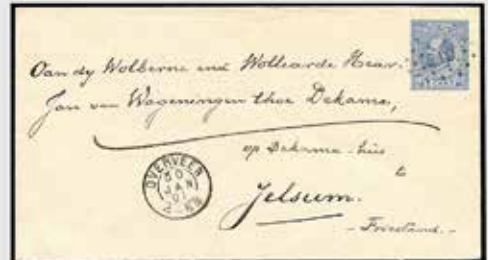 Oan dy Wolberne end Wolleärde Hear:
Jan van Wageningen thoe Dekama,
op Dekama-hûs
to
Jelsum.
- Friesland. -
OVERVEEN
30
JAN